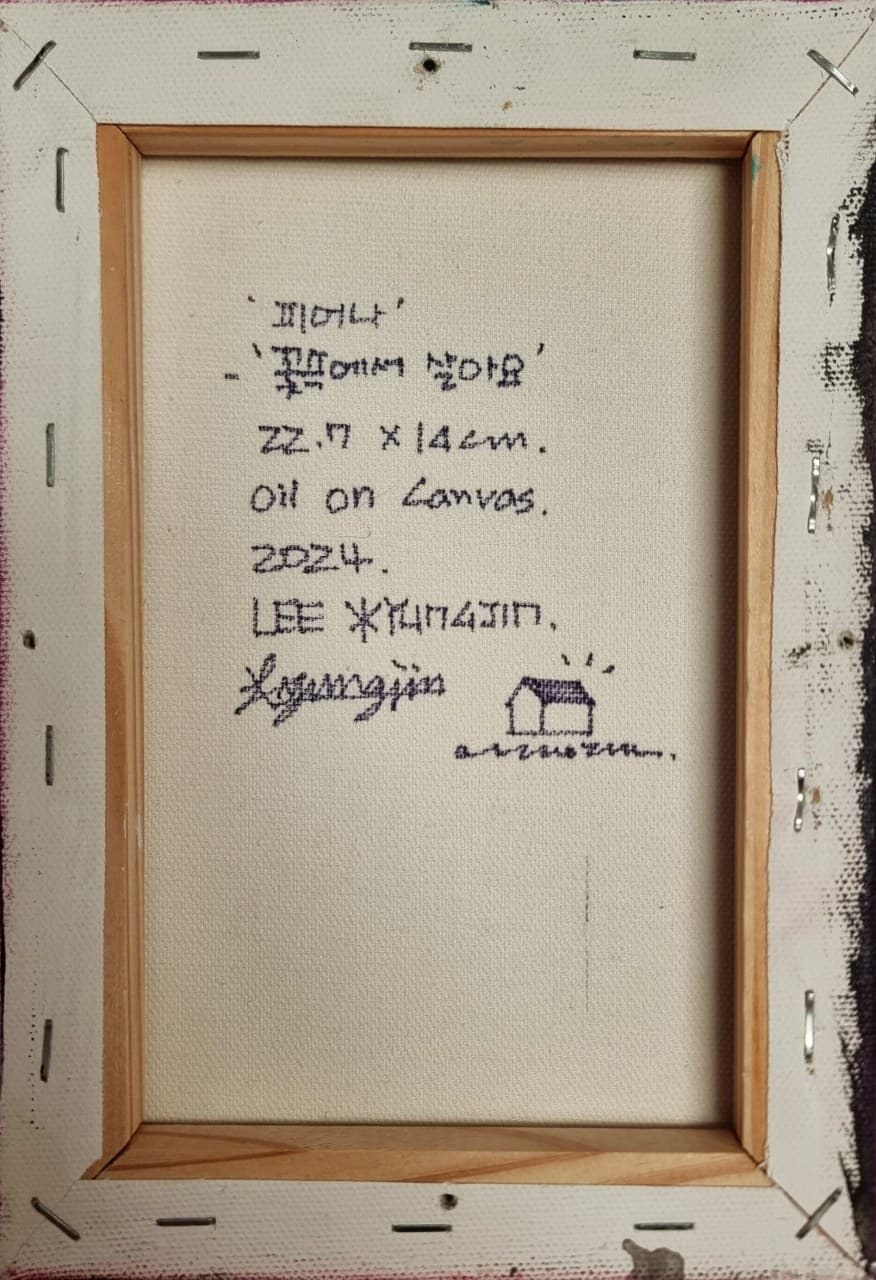 '피어나'
- ' 살아요'
22.7 x 14cm.
oil on canvas.
2024.
LEE KYUNGJIN.
Kyungjin